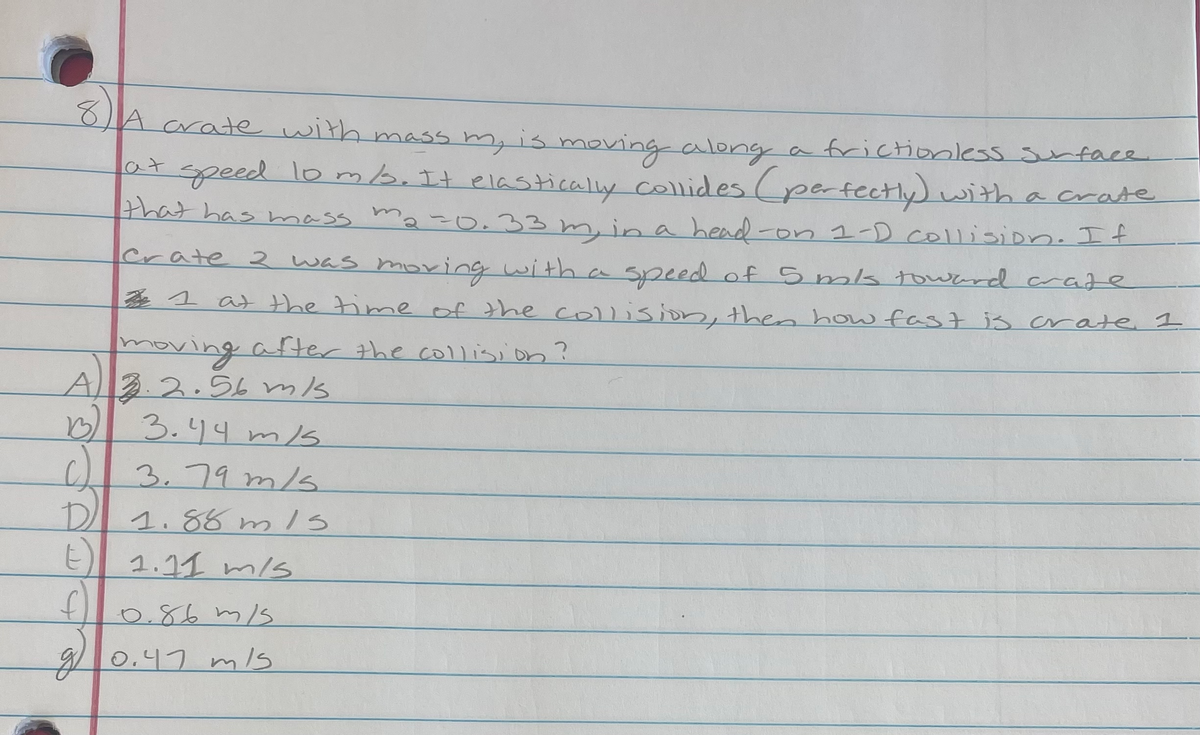 8) A crate with mass m, is moving along a frictionless surface
at speed 10 m/s. It elastically collides (perfectly) with a crate
that has mass m₂ = 0.33 m, in a head-on 1-D collision. If
crate 2 was moving with a speed of 5 m/s toward crate
1 at the time of the collision, then how fast is crate 1
moving after the collision?
A) 2.56 m/s
B) 3.44 m/s
C) 3.79 m/s
D) 1.88 m/s
E) 1.11 m/s
f) 0.86 m/s
g) 0.47 m/s